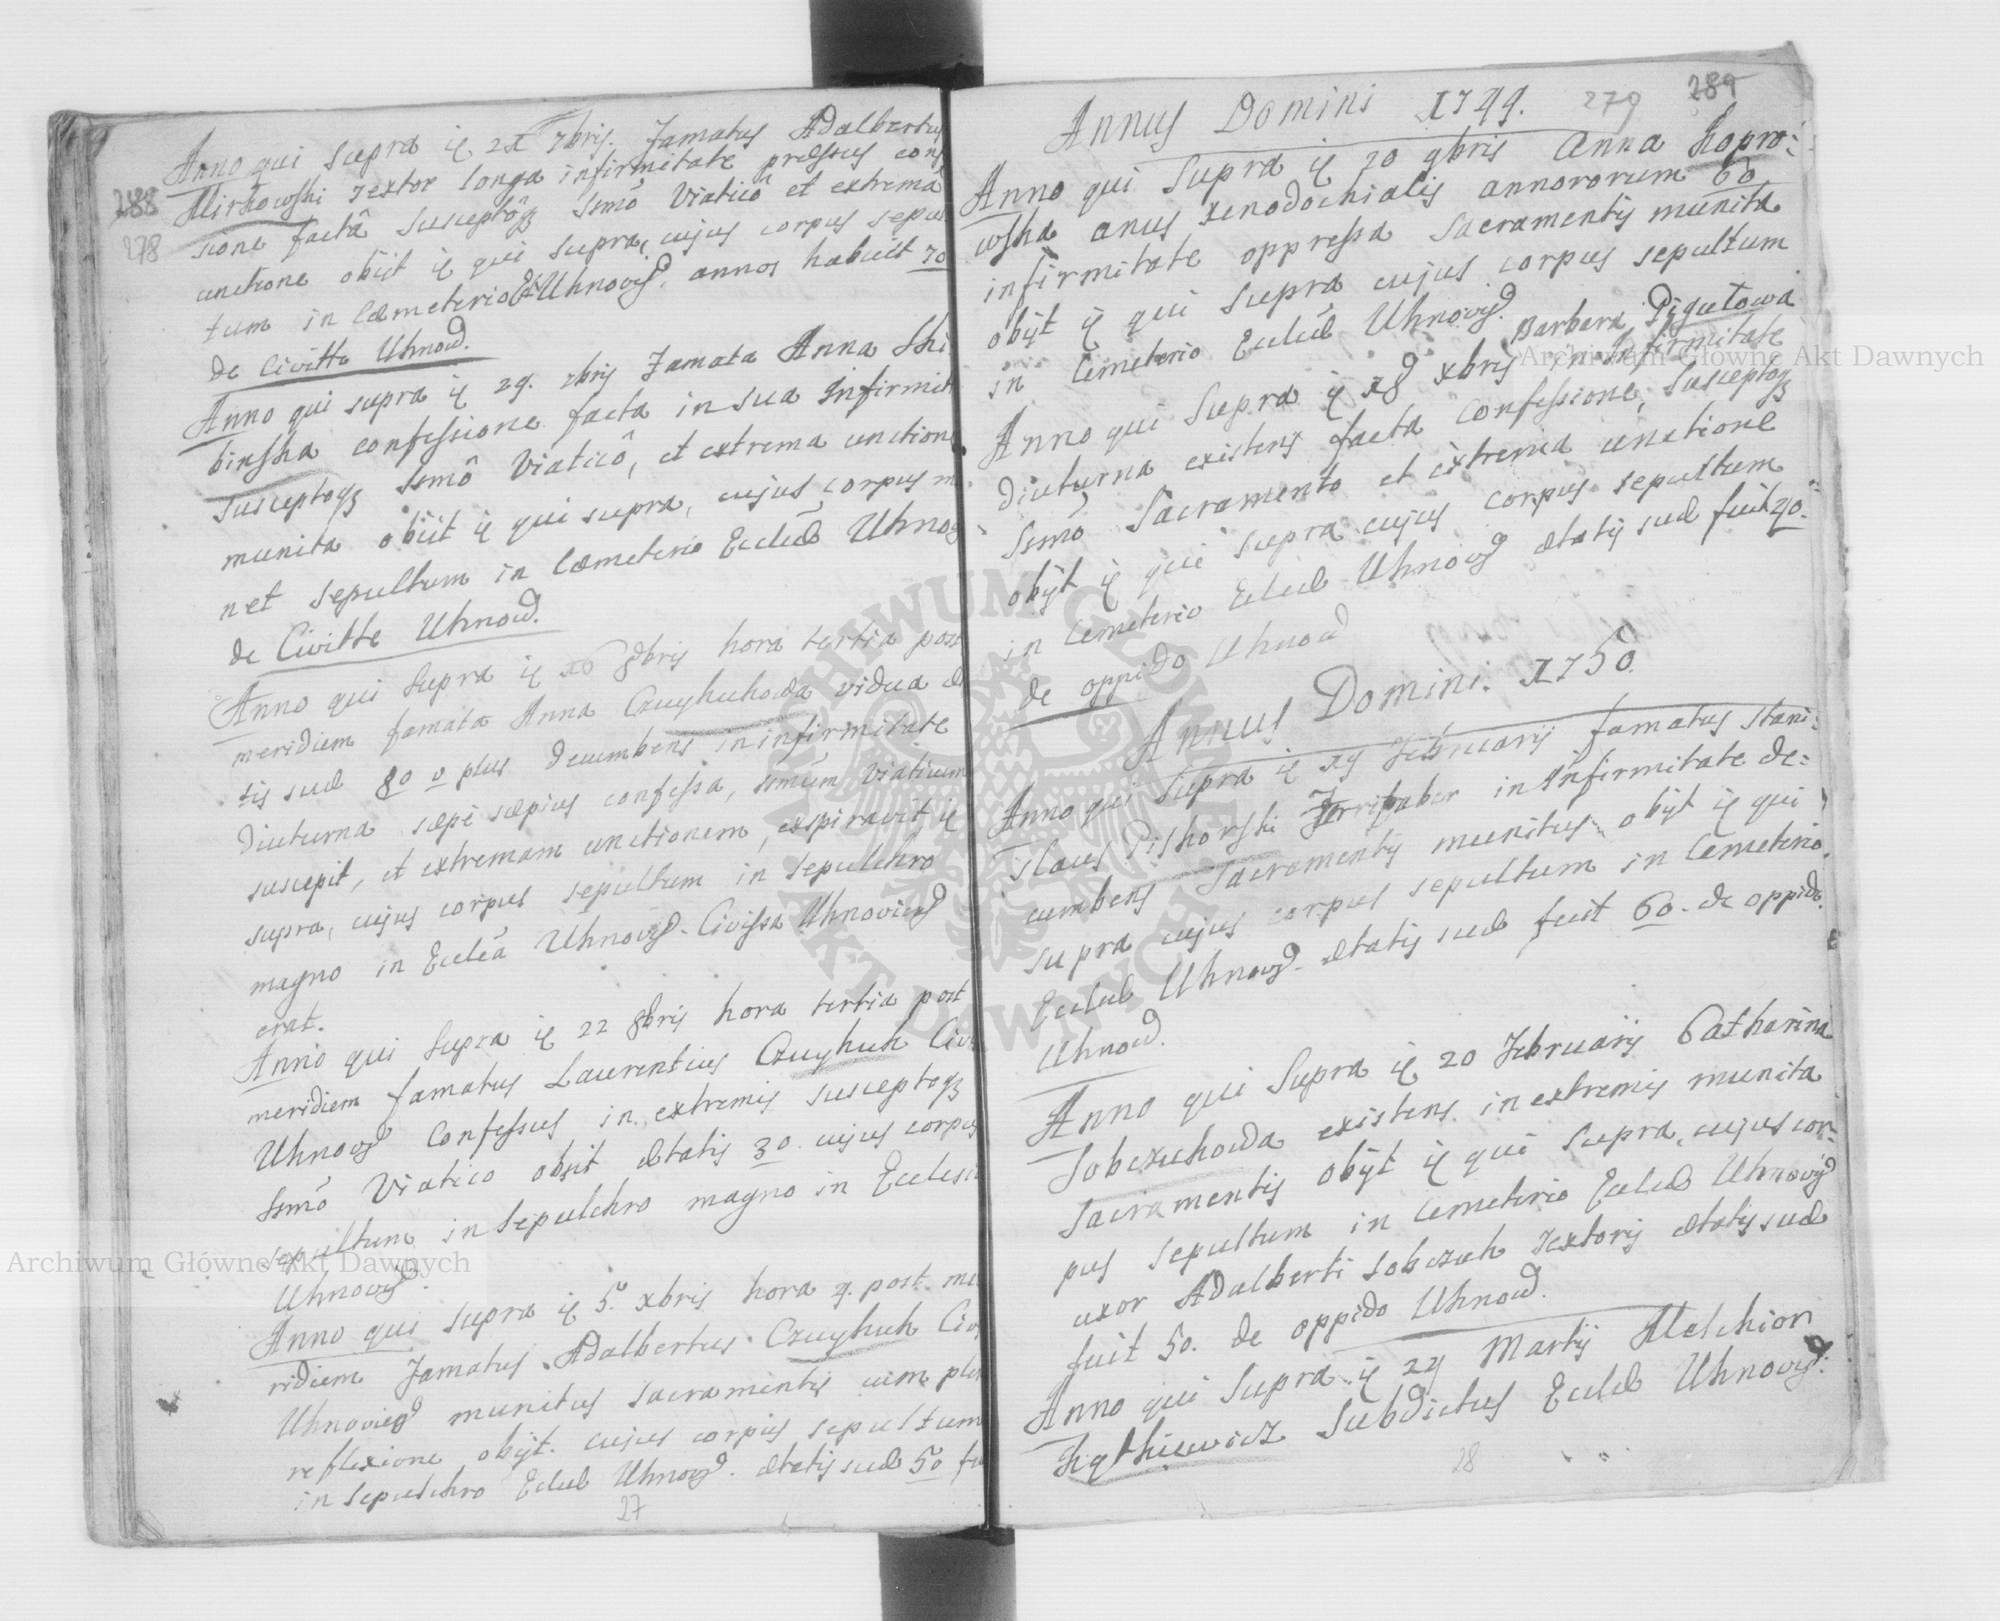 288
278
Anno qui supra ię 21 7bris. Famatus Adalbertus
Mirkowski Textor longa infirmitate pressus con
sione factâ susceptôqz ssmô Viaticô et extremâ
unctione obijt ię qui supra, cujus corpus sepul
tum in Cæmeterio Uhnovị. annos habuit 70
de Civitte Uhnow.
Anno qui supra ię 29. 7bris Famata Anna Ski
binska confessione facta in sua Infirmit
susceptoqz ssmô Viaticô, et extrema unctione
munita obiit ię qui supra, cujus corpus m
net sepultum in Cæmeterio Eccliæ Uhnov
de Civitte Uhnow.
Anno qui supra ię 16 8bris hora tertia post
meridiem famata Anna Czuykukowa vidua æ
tis suæ 80 v plus decumbens in infirmitate
diuturna sæpe sæpius confessa, ssmum Viaticum
suscepit, et extremam unctionem, exspiravit ię
supra, cujus corpus sepultum in Sepulchro
magno in Eccleâ Uhnov. Civissa Uhnovien
erat.
Anno qui supra ię 22 8bris hora tertia post
meridiem famatus Laurentius Czuykuk Civi
Uhnov Confessus in extremis susceptoqz
ssmô Viatico obiit ætatis 30 cujus corpus
sepultum in Sepulchro magno in Ecclesia
Uhnov.
Anno qui supra ię 5. xbris hora 4. post me
ridiem Famatus Adalbertus Czuykuk Civi
Uhnovien munitus sacramentis cum plu
reflexione obijt. cujus corpus sepultum
in sepulchro Ecliæ Uhnov. ætatis suæ 50 fu
27
279 289
Annus Domini 1749.
Anno qui supra ię 20 9bris Anna Kopro:
wska anus xenodochialis annororum 60
infirmitate oppressa Sacramentis munita
obijt ię qui supra cujus corpus sepultum
in Cemeterio Eccliæ Uhnov.
Anno qui supra ię 18 xbris Barbara Pigutowa in infirmitate
diuturna existens facta confessione, susceptoqz
ssmô Sacramento et extrema unctione
obijt ię qui supra cujus corpus sepultum
in Cemeterio Ecliæ Uhnov ætatis suæ fuit 40.
de oppido Uhnow
Annus Domini. 1750.
Anno qui supra ię 19 Februarij famatus Stani:
islaus Piskorski Ferrifaber in Infirmitate de=
cumbens Sacramentis munitus obijt ię qui
supra cujus corpus sepultum in Cemeterio
Ecliæ Uhnov. ætatis suæ fuit 60. de oppido
Uhnow.
Anno qui supra ię 20 Februarij Catharina
Sobczukowa existens in extremis munita
Sacramentis obijt ię qui supra, cujus cor=
pus sepultum in Cemeterio Ecliæ Uhnov
uxor Adalberti Sobczuk Textoris ætatis suæ
fuit 50. de oppido Uhnow.
Anno qui supra ię 29 Martij Melchior
Subdictus Ecliæ Uhnov:
28
Archiwum Główne Akt Dawnych
Archiwum Główne Akt Dawnych
ARCHIWUM GŁÓWNE AKT DAWNYCH